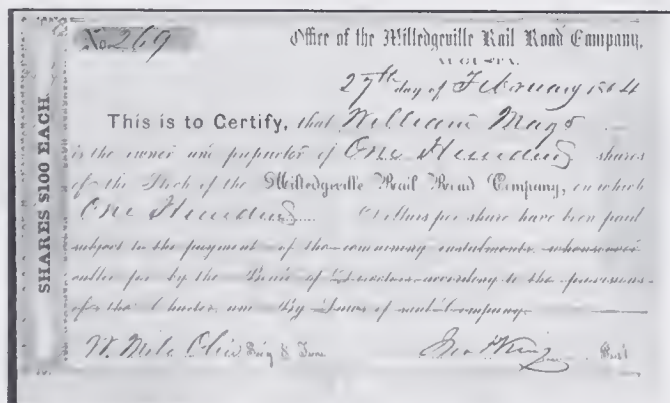 SHARES $100 EACH.
No. 269 Office of the Milledgeville Rail Road Company,
AUGUSTA,
27th day of February 1864
This is to Certify, that William Mays
is the owner and proprietor of One Hundred shares
of the Stock of the Milledgeville Rail Road Company, on which
One Hundred Dollars per share have been paid
subject to the payment of the remaining instalments whenever
called for by the Board of Directors according to the provisions
of the Charter and By Laws of said Company.
W. Milo Olin Sec'y & Treas Jno P King Pres't